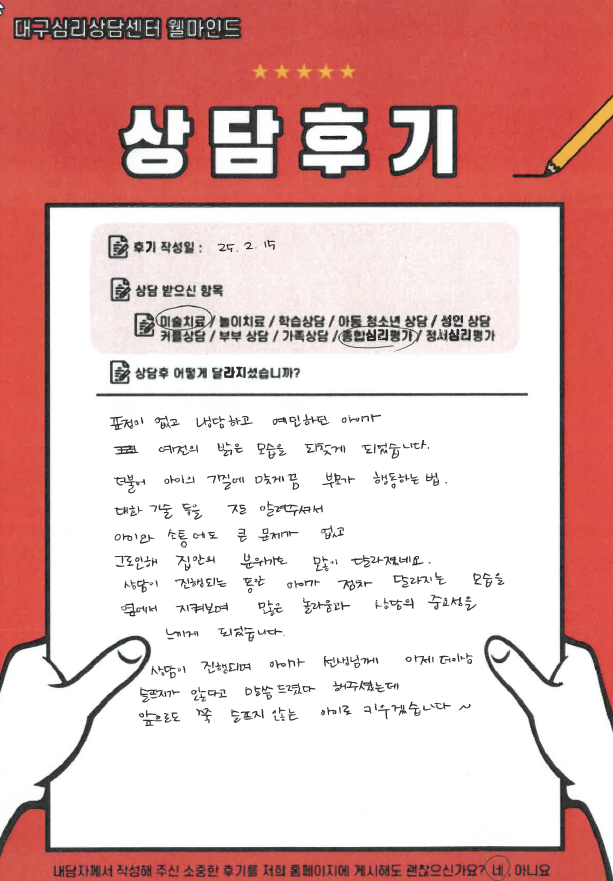 대구심리상담센터 웰마인드
상담후기
후기 작성일 : 25. 2. 15
상담 받으신 항목
미술치료 / 놀이치료 / 학습상담 / 아동 청소년 상담 / 성인 상담
커플상담 / 부부 상담 / 가족상담 / 종합심리평가 / 정서심리평가
상담후 어떻게 달라지셨습니까?
표정이 없고 냉담하고 예민하던 아이가
예전의 밝은 모습을 되찾게 되었습니다.
더불어 아이의 기질에 맞게끔 부모가 행동하는 법.
대화 기술 등을 잘 알려주셔서
아이와 소통에도 큰 문제가 없고
그로인해 집안의 분위기도 많이 달라졌네요.
상담이 진행되는 동안 아이가 점차 달라지는 모습을
옆에서 지켜보며 많은 놀라움과 상담의 중요성을
느끼게 되었습니다.
상담이 진행되며 아이가 선생님께 이제 더이상
슬프지가 않다고 말씀드렸다 해주셨는데
앞으로도 쭉 슬프지 않는 아이로 키우겠습니다 ~
내담자께서 작성해 주신 소중한 후기를 저희 홈페이지에 게시해도 괜찮으신가요? 네 , 아니요